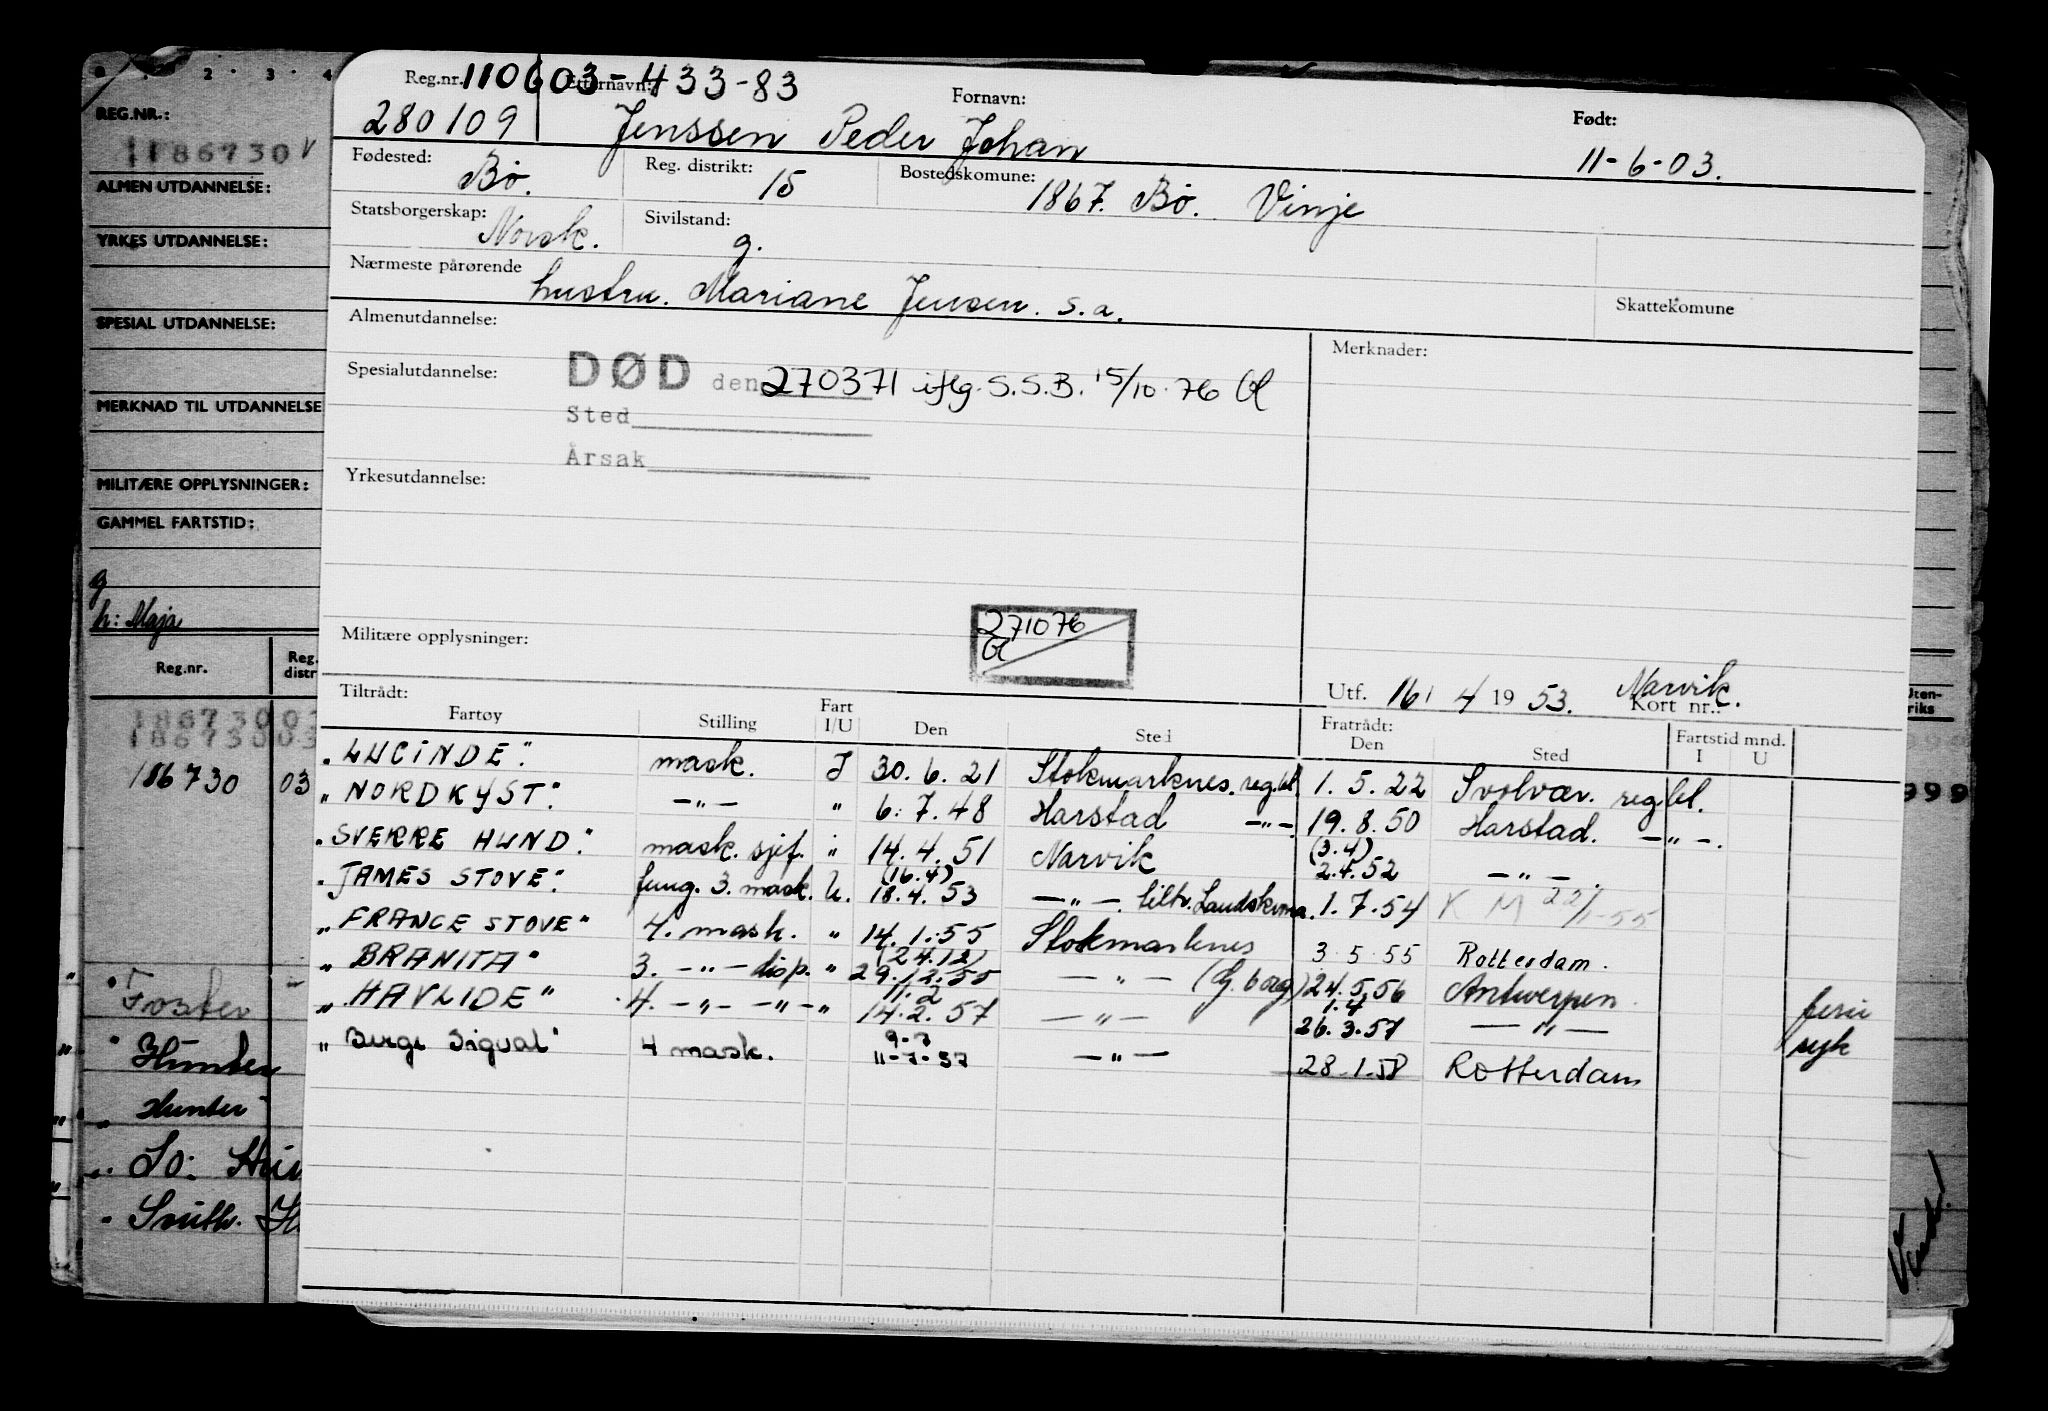 Reg.nr. 110603-433-83 Etternavn: Fornavn: Født:
280109 Jenssen Peder Johan 11-6-03.
Fødested: Bø. Reg. distrikt: 15 Bostedskomune: 1867. Bø. Vinje
Statsborgerskap: Norsk. Sivilstand: g.
Nærmeste pårørende hustru. Mariane Jensen. s.a. Skattekomune
Almenutdannelse: Merknader:
Spesialutdannelse: DØD den 270371 iflg. S.S.B. 15/10-76
Sted
Årsak
Yrkesutdannelse:
271076
Militære opplysninger:
Utf. 16/4 1953. Narvik. Kort nr.:
Tiltrådt: Fratrådt:
Fartøy Stilling Fart I/U Den Sted Den Sted Fartstid mnd. I U
"LUCINDE". mask. I 30.6.21 Stokmarknes. reg.bl. 1.5.22 Svolvær. reg.bl.
"NORDKYST." -"- " 6.7.48 Harstad -"- 19.8.50 Harstad. -"-.
"SVERRE HUND". mask. sjef. " 14.4.51 Narvik (3.4) 2.4.52 -"-.
"JAMES STOVE". fung. 3. mask. U. (16.4) 18.4.53 -"-. tiltr. Landskrona. 1.7.54 K M 22/1-55
"FRANCE STOVE" 4. mask. " 14.1.55 Stokmarknes 3.5.55 Rotterdam.
"BRANITA" 3. -"- disp. " (24.12) 29.12.55 -"- (G.borg) 24.5.56 Antwerpen. ferie
"HAVLIDE" 4. -"- -"- " 11.2 14.2.57 -"- 1.4 26.3.57 -"- syk
"Berge Sigval" 4 mask. 9-7 11-7-57 -"- 28.1.58 Rotterdam
REG.NR.:
186730 V
ALMEN UTDANNELSE:
YRKES UTDANNELSE:
SPESIAL UTDANNELSE:
MERKNAD TIL UTDANNELSE
MILITÆRE OPPLYSNINGER:
GAMMEL FARTSTID:
g
h: Maja
Reg.nr. Reg. distr
Uten-
riks
18673003
18673003
186730 03
999
Foster
Hunter
Hunter